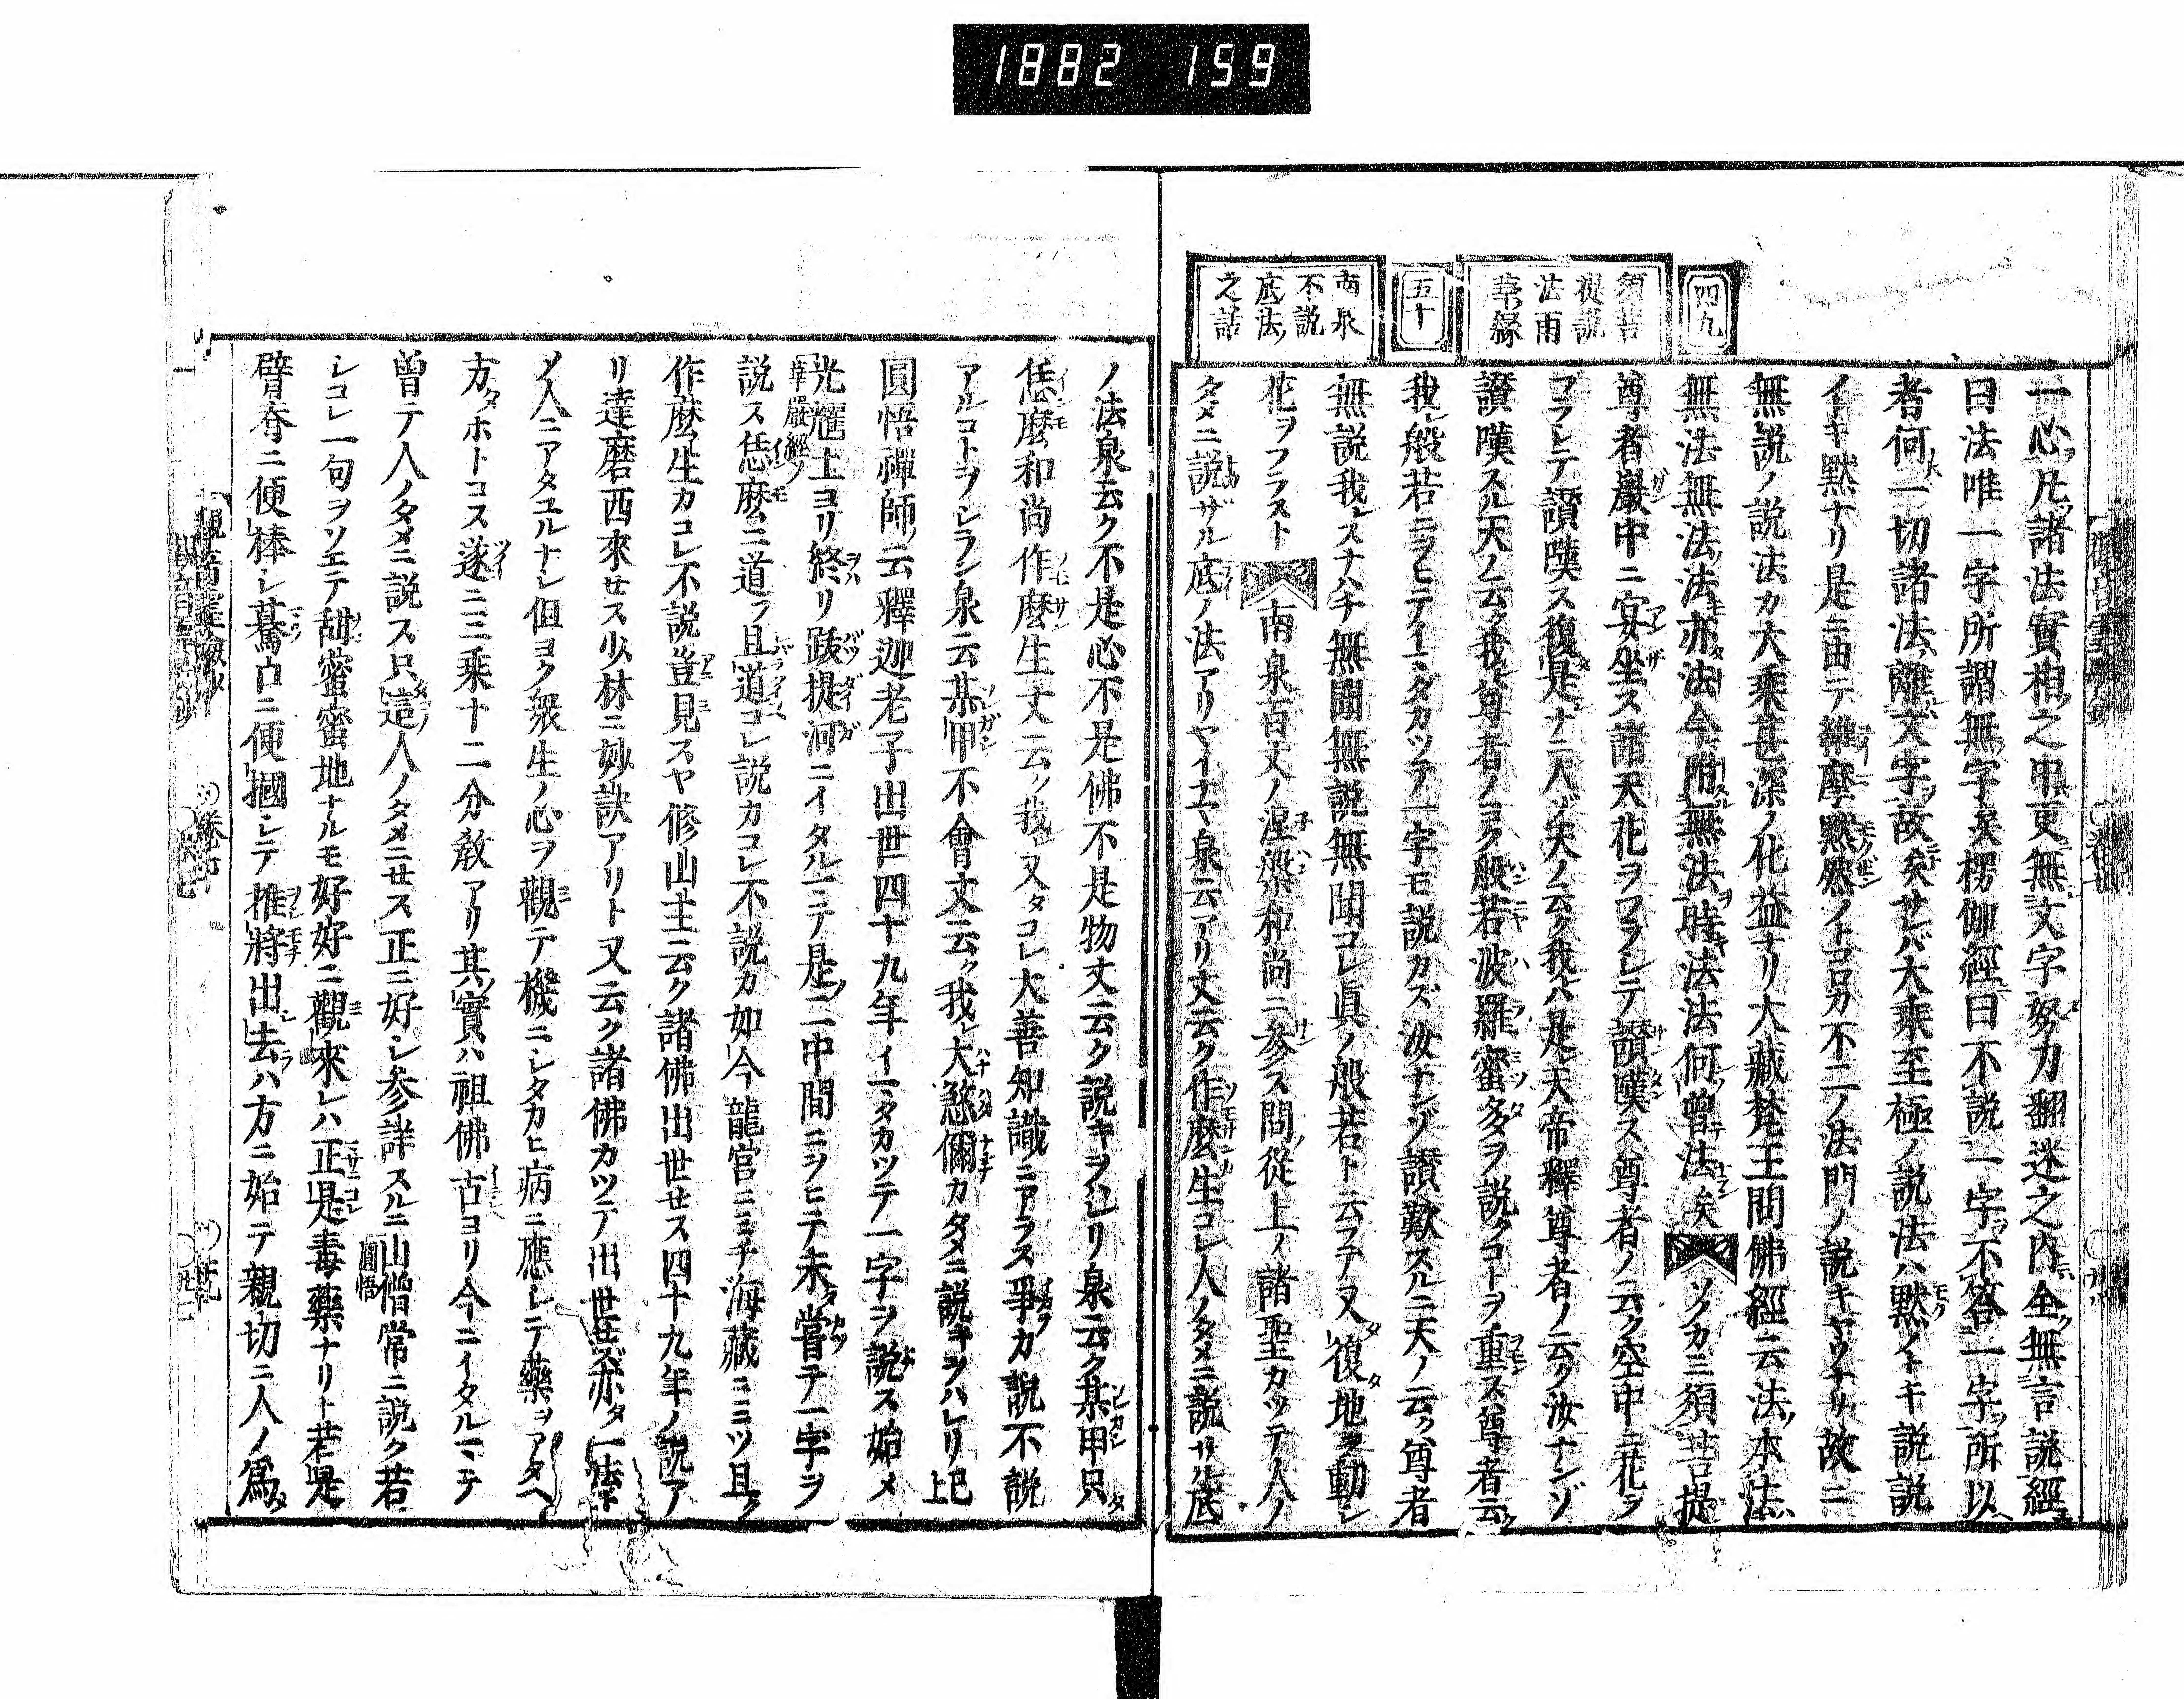 1882 159
四九
須菩
提説
法雨
華縁
五十
南泉
不説
底法
之話
一心凡諸法實相之中更無文字努力翻迷之内全無言説經
曰法唯一字所謂無字矣楞伽經曰不説一字不答一字所以
者何一切諸法離文字故矣サレバ大乘至極ノ説法ハ黙ノトキ説説
イトキ黙ナリ是ニ由テ維摩黙然ノトコロカ不二ノ法門ノ説キヤウナリ故ニ
無説ノ説法カ大乘甚深ノ化益ナリ大藏梵王問佛經云法本法
無法無法法亦法今附無法時法法何曾法矣 ソノカミ須菩提
尊者巖中ニ宴坐ス諸天花ヲフラシテ讃嘆ス尊者ノ云ク空中ニ花ヲ
フラシテ讃嘆ス復是ナニ人ゾ天ノ云ク我ハ是天帝釋尊者ノ云ク汝ナンゾ
讃嘆スル天ノ云ク我レ尊者ノヨク般若波羅蜜多ヲ説クコトヲ重ス尊者云
我レ般若ニヲヒテイマダカツテ一字モ説カズ汝ナンゾ讃歎スルニ天ノ云ク尊者
無説我レスナハチ無聞無説無聞コレ眞ノ般若ト云フテ又復地ヲ動シ
花ヲフラスト 南泉百丈ノ涅槃和尚ニ参ス問從上ノ諸聖カツテ人ノ
タメニ説ザル底ノ法アリヤイナヤ泉云アリ丈云ク作麼生コレ人ノタメニ説サル底
ノ法泉云ク不是心不是佛不是物丈云ク説キヲハレリ泉云ク某甲只
恁麼和尚作麼生丈云ク我又タコレ大善知識ニアラス爭カ説不説
アルコトヲシラン泉云某甲不會丈云ク我レ大煞儞カタメニ説キヲハレリ已上
圓悟禪師云釋迦老子出世四十九年イマタカツテ一字ヲ説ス始メ
光耀土ヨリ終リ跋提河ニイタルマテ是ノ二中間ニヲヒテ未嘗テ一字ヲ
華嚴經ノ
説ス恁麼ニ道フ且道コレ説カコレ不説カ如今龍宮ニミチ海藏ニミツ且ク
作麼生カコレ不説豈見スヤ修山主云ク諸佛出世セス四十九年ノ説ア
リ達磨西來セス少林ニ妙訣アリト又云ク諸佛カツテ出世セズ亦タ一法ト
メ人ニアタユルナレ但ヨク衆生ノ心ヲ觀テ機ニシタカヒ病ニ應シテ藥ヲアタヘ
方タホトコス遂ニ三乘十二分教アリ其實ハ祖佛古ヨリ今ニイタルマテ
曾テ人ノタメニ説ス只這人ノタメニセス正ニ好シ参詳スルニ山僧常ニ説ク若
圓悟
レコレ一句ヲソエテ甜蜜蜜地ナルモ好好ニ觀來レハ正是毒藥ナリト若是
劈脊ニ便棒シ驀口ニ便摑シテ推將出去ハ方ニ始テ親切ニ人ノ爲